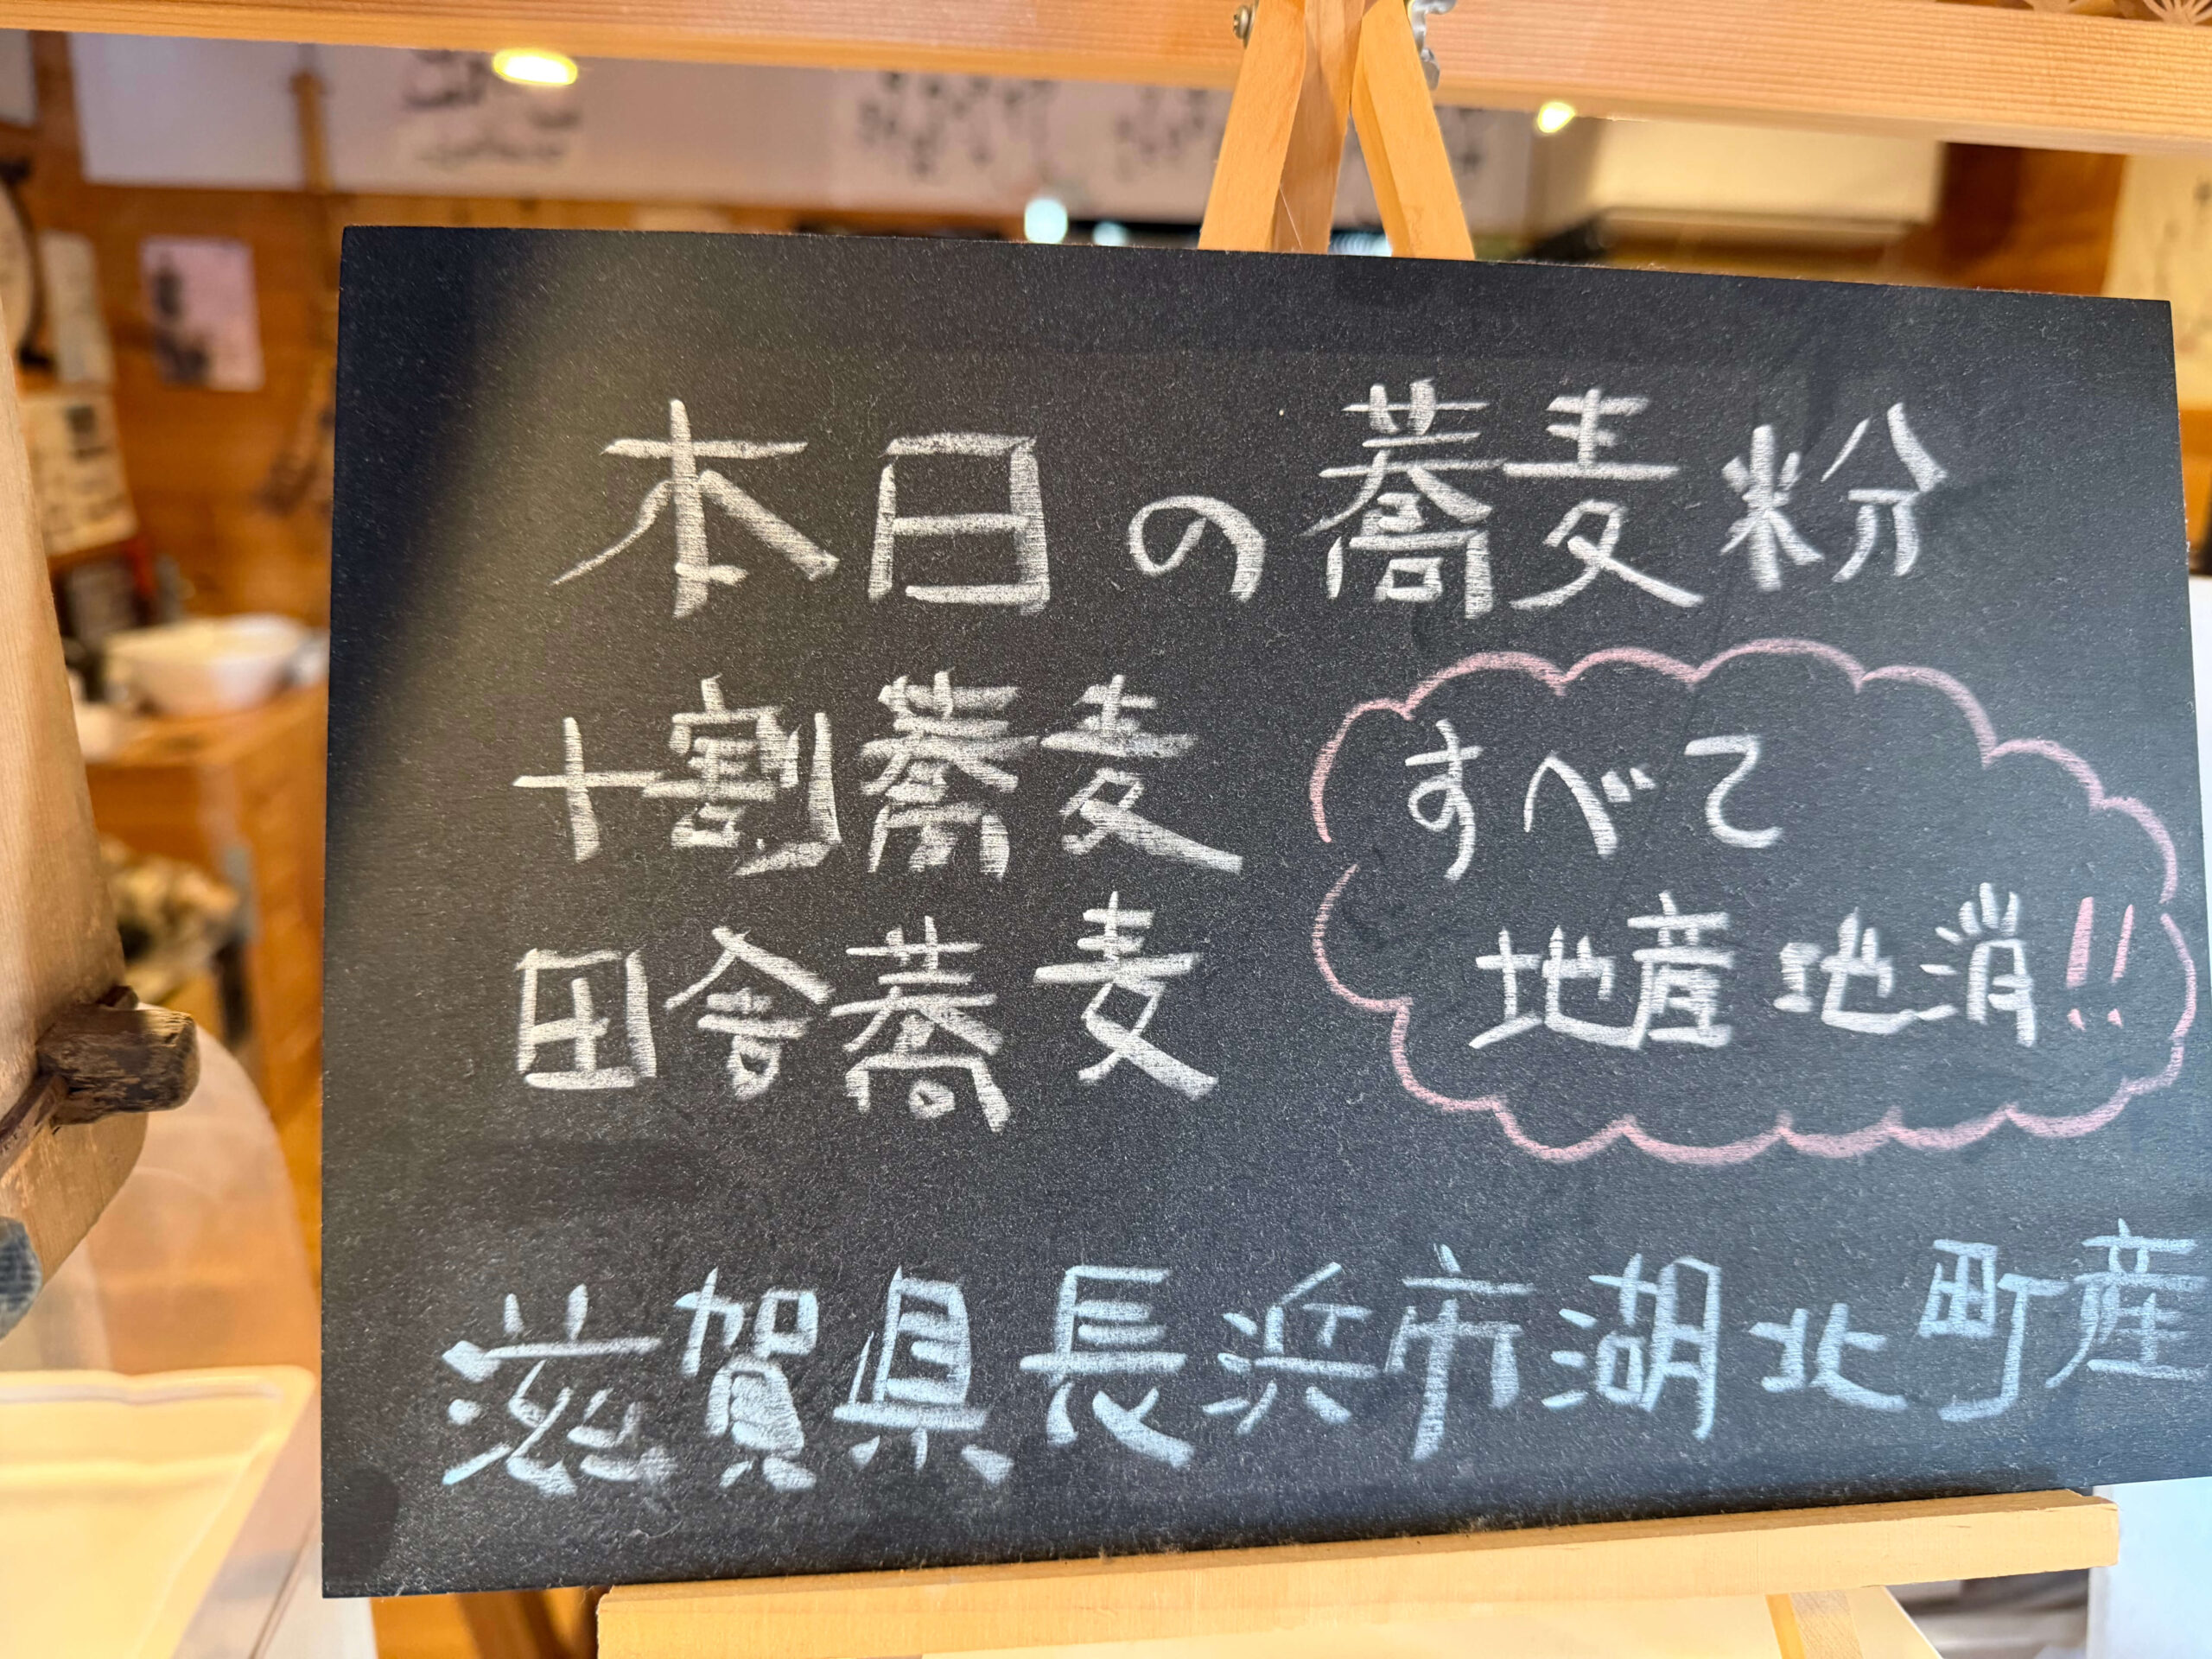 本日の蕎麦粉
十割蕎麦
田舎蕎麦
すべて
地産地消!!
滋賀県長浜市湖北町産